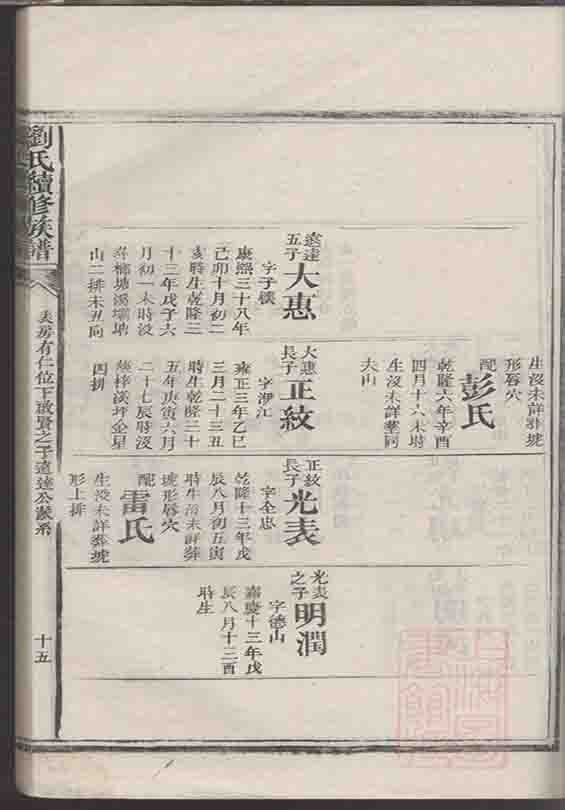 遠達
五子
大惠
字子懷
康熙三十八年
己卯十月初二
亥時生乾隆三
十三年戊子六
月初一未時没
塘溪壩塘
山二排未丑向
生没未詳葬琥
形唇穴
大惠
長子
正紋
字渺江
雍正三年乙巳
三月二十三丑
時生乾隆三十
五年庚寅六月
二十七辰時没
葵梓溪坪金星
四排
配彭氏
乾隆六年辛酉
四月十六未時
生没未詳葬同
夫山
正紋
長子
光表
字全忠
乾隆十三年戊
辰八月初五寅
時生没未詳葬
琥形唇穴
配雷氏
生没未詳葬琥
形上排
光表
之子
明潤
字德山
嘉慶十三年戊
辰八月十三酉
時生
劉氏續修族譜
美房有仁位下啟賢之子遠達公派系
十五